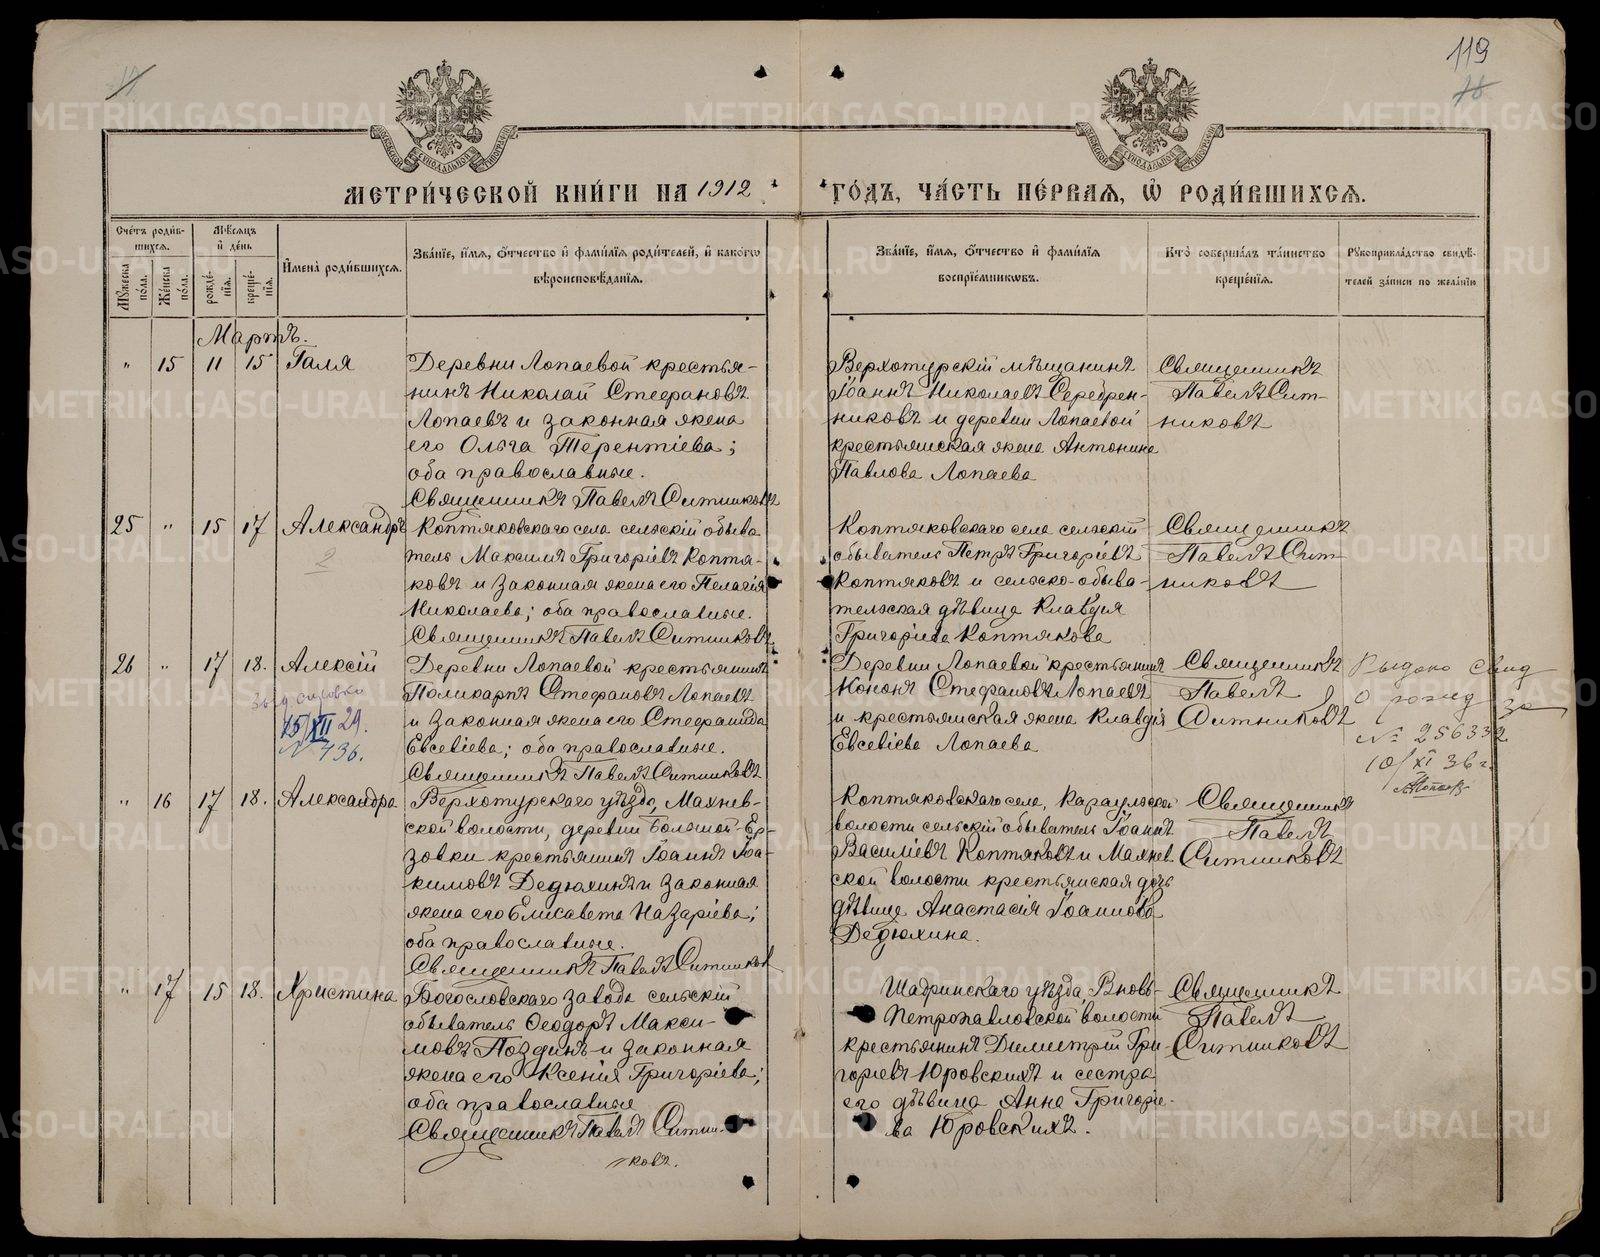 119
МЕТРИ́ЧЕСКОЙ КНИ́ГИ НА 1912 ГО́ДЪ, ЧА́СТЬ ПЕ́РВАЯ, Ѡ҆ РОДИ́ВШИХСѦ.
Сче́тъ роди́вшихсѧ.
Му́жеска по́ла.
Же́нска по́ла.
Мѣ́сѧцъ и҆ де́нь
рожде́нїѧ.
креще́нїѧ.
И҆мена̀ роди́вшихсѧ.
Зва́нїе, и҆́мѧ, ѻ҆́тчество и҆ фами́лїѧ роди́телей, и҆ како́гѡ
вѣроисповѣ́данїѧ.
Зва́нїе, и҆́мѧ, ѻ҆́тчество и҆ фами́лїѧ
воспрїе́мникѡвъ.
Кто̀ соверша́лъ та́инство
креще́нїѧ.
Рꙋкоприкла́дство свидѣ́-
телей за́писи по жела́нїю
Мартъ.
" 15 11 15 Галя
Деревни Лопаевой крестья-
нинъ Николай Стефановъ
Лопаевъ и законная жена
его Ольга Терентіева;
оба православные.
Священникъ Павелъ Ситниковъ
Верхотурскій мѣщанинъ
Іоаннъ Николаевъ Серебрен-
никовъ и деревни Лопаевой
крестьянская жена Антонина
Павлова Лопаева
Священникъ
Павелъ Сит-
никовъ
25 " 15 17 Александръ
2
Коптяковскаго села сельскій обыва
тель Максимъ Григоріевъ Коптя-
ковъ и законная жена его Пелагія
Николаева; оба православные.
Священникъ Павелъ Ситниковъ
Коптяковскаго села сельскій
обыватель Петръ Григоріевъ
Коптяковъ и сельско-обыва-
тельская дѣвица Клавдія
Григоріева Коптякова
Священникъ
Павелъ Сит-
никовъ
26 " 17 18. Алексій
15/XII 29.
N 436.
Деревни Лопаевой крестьянинъ
Поликарпъ Стефановъ Лопаевъ
и законная жена его Стефанида
Евсевіева; оба православные.
Священникъ Павелъ Ситниковъ
Деревни Лопаевой крестьянинъ
Кононъ Стефановъ Лопаевъ
и крестьянская жена Клавдія
Евсевіева Лопаева
Священникъ
Павелъ
Ситниковъ
Выдано свид
о рожд за
№ 256332
10/XI 36 г.
" 16 17 18. Александра
Верхотурскаго уѣзда, Махнев-
ской волости, деревни Большой-Ер-
зовки крестьянинъ Іоаннъ Іоа-
кимовъ Дедюхинъ и законная
жена его Елисавета Назаріева;
оба православные.
Священникъ Павелъ Ситниковъ
Коптяковскаго села, Караульской
волости сельскій обыватель Іоаннъ
Василіевъ Коптяковъ и Махнев
ской волости крестьянская дочь
дѣвица Анастасія Іоаннова
Дедюхина.
Священникъ
Павелъ
Ситниковъ
" 17 15 18. Христина
Богословскаго завода сельскій
обыватель Ѳеодоръ Макси-
мовъ Поздинъ и законная
жена его Ксенія Григоріева;
оба православные
Священникъ Павелъ Ситни-
ковъ.
Шадринскаго уѣзда, Вновь-
Петропавловской волости
крестьянинъ Димитрій Гри-
горіевъ Юровскихъ и сестра
его дѣвица Анна Григоріе-
ва Юровскихъ.
Священникъ
Павелъ
Ситниковъ
METRIKI.GASO-URAL.RU